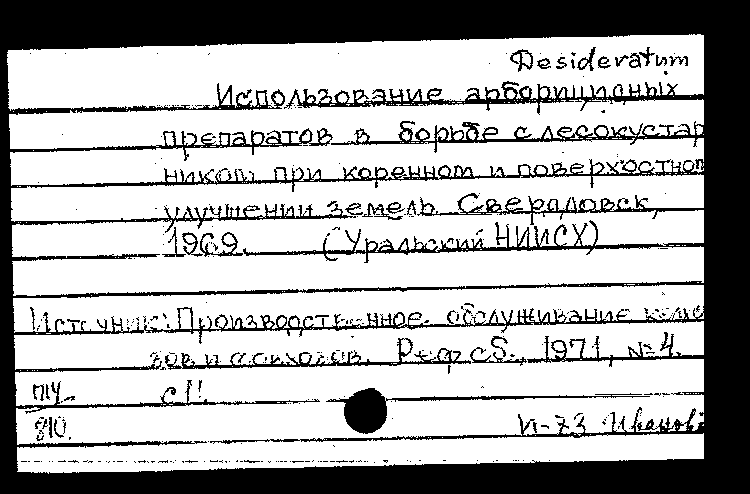 Desideratum
Использование арборицидных
препаратов в борьбе с лесокустар
ником при коренном и поверхностном
улучшении земель Свердловск,
1969. (Уральский НИИСХ)
Источник: Производственное обслуживание колхо
зов и совхозов. Реф сб., 1971, № 4.
с 11.
П14
810.
VI-73 Иванова